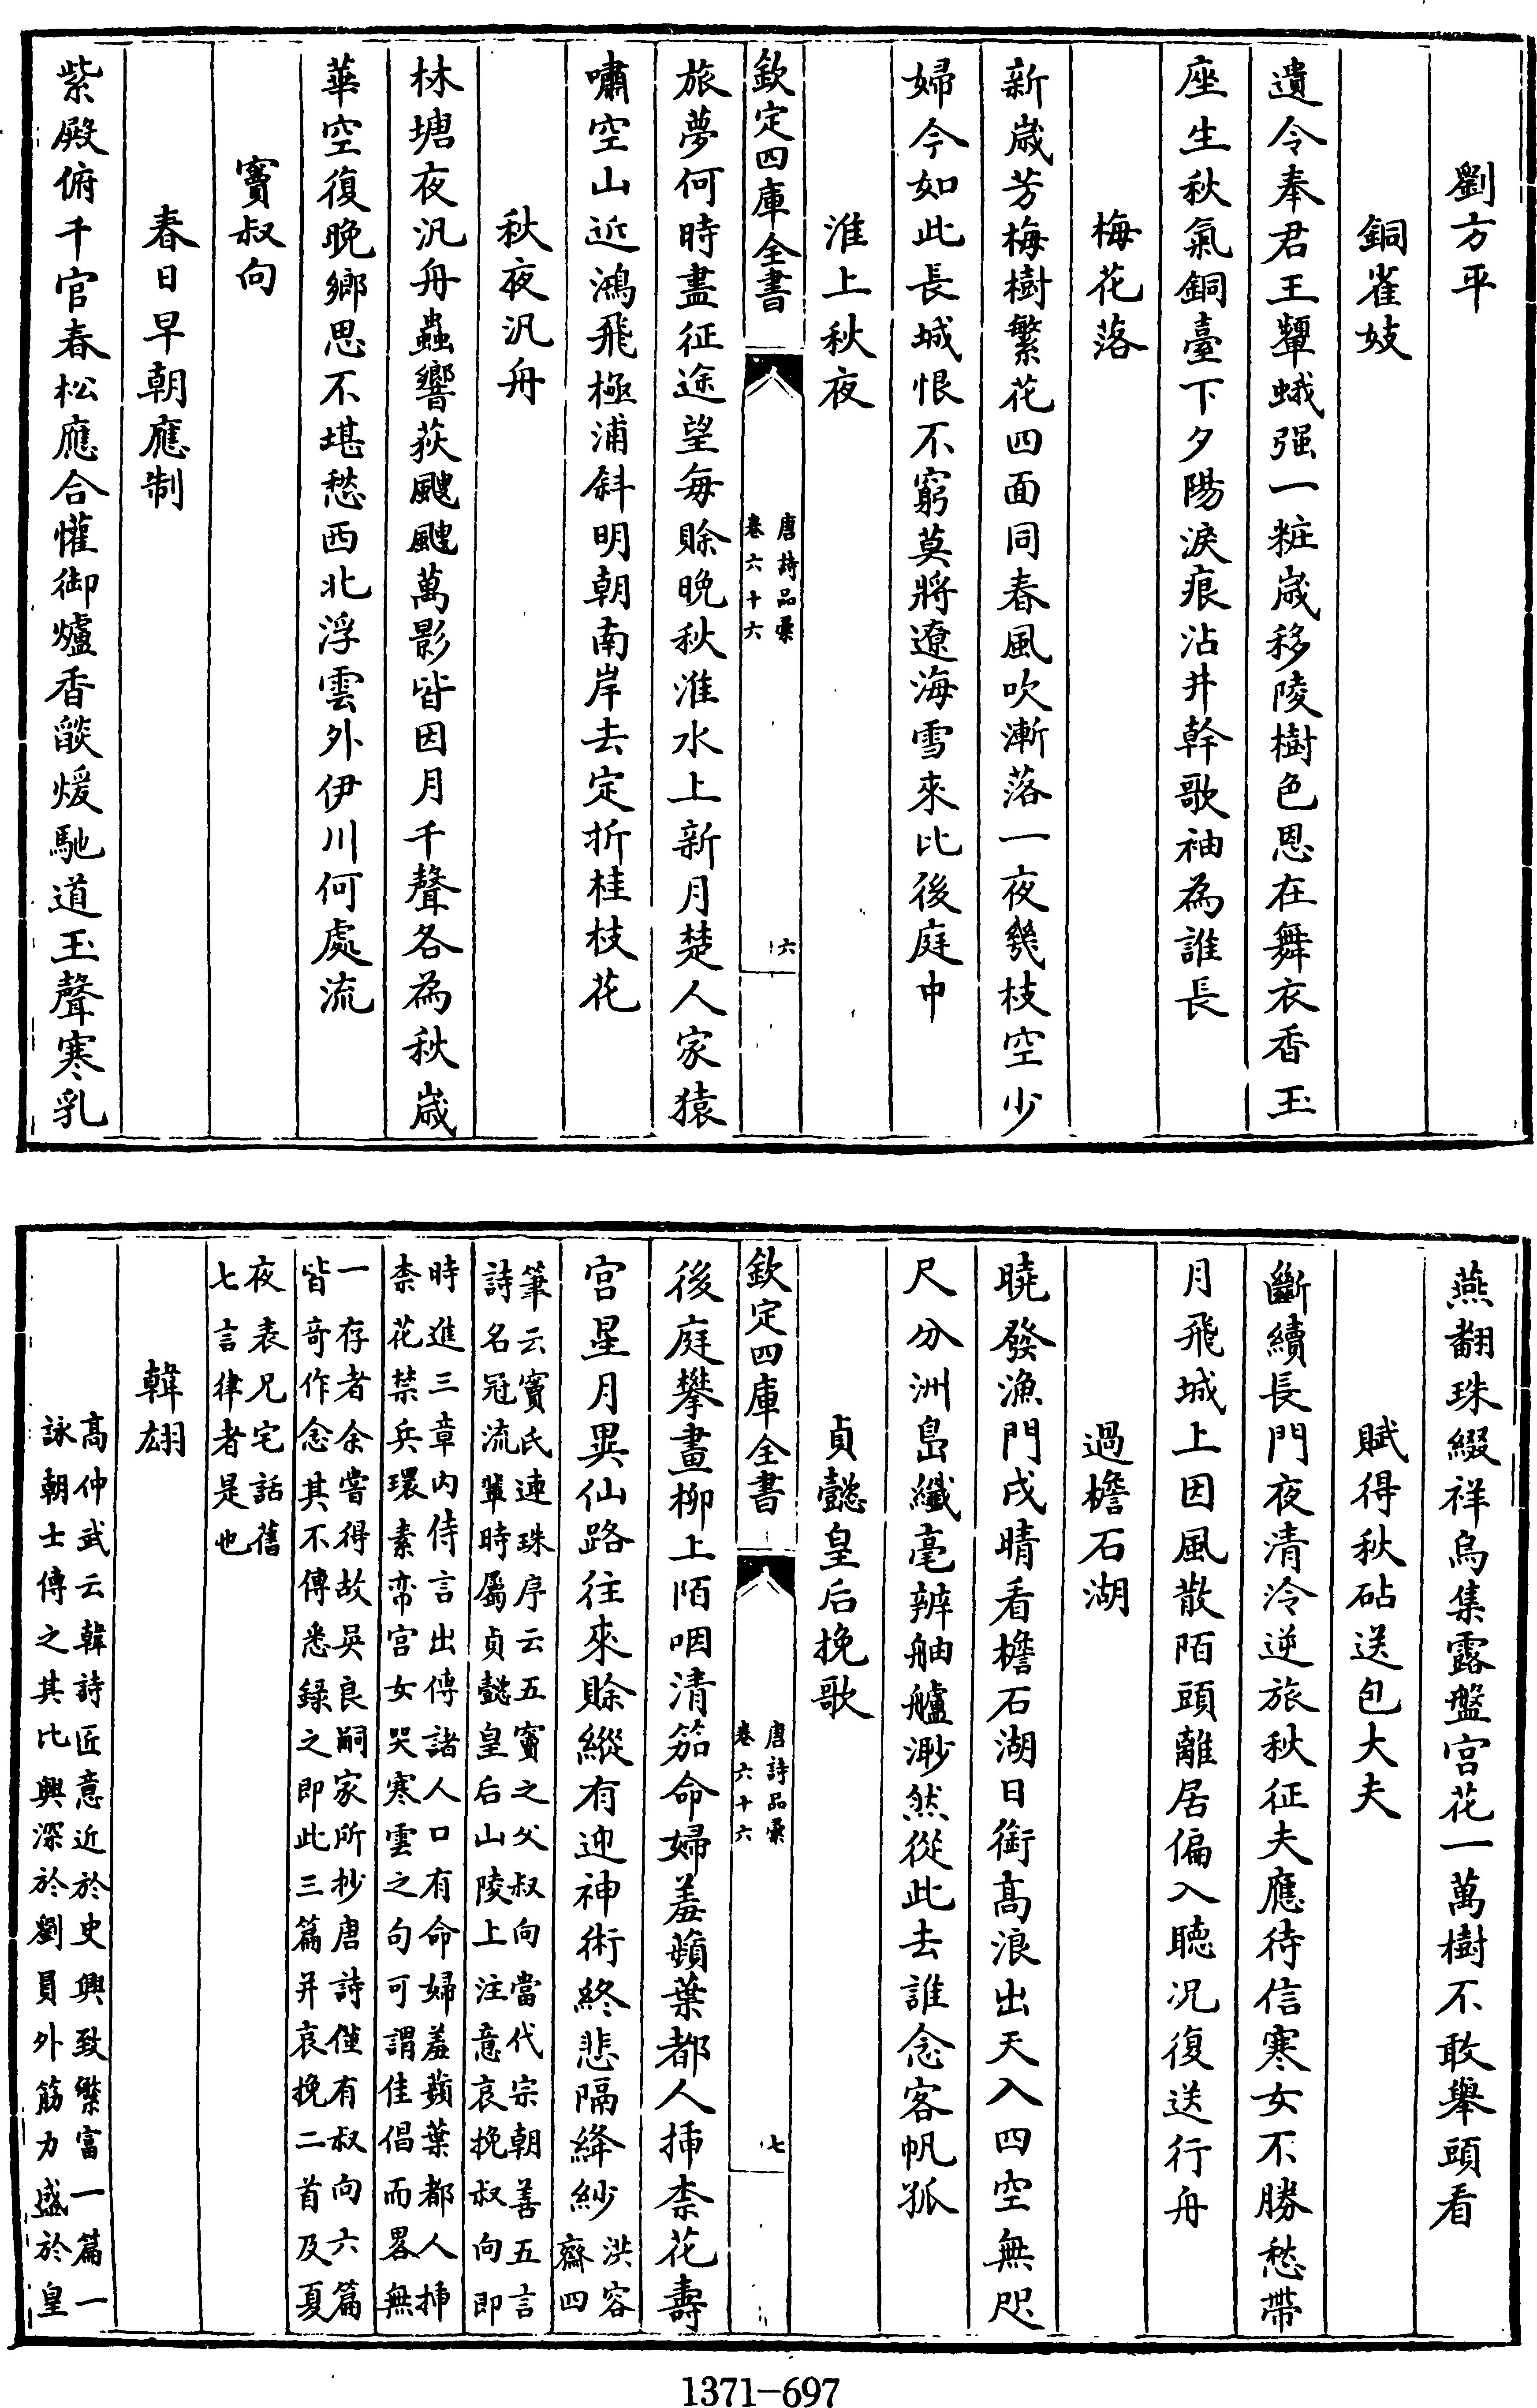 劉方平
銅雀妓
遺令奉君王顰蛾强一粧歳移陵樹色恩在舞衣香玉
座生秋氣銅臺下夕陽淚痕沾井幹歌袖為誰長
梅花落
新歳芳梅樹繁花四面同春風吹漸落一夜幾枝空少
婦今如此長城恨不窮莫將遼海雪來比後庭中
淮上秋夜
欽定四庫全書
唐詩品彙
卷六十六
六
旅夢何時盡征途望每賒晚秋淮水上新月楚人家猿
嘯空山近鴻飛極浦斜明朝南岸去定折桂枝花
秋夜汎舟
林塘夜汎舟蟲響荻颼颼萬影皆因月千聲各為秋歳
華空復晚鄉思不堪愁西北浮雲外伊川何處流
竇叔向
春日早朝應制
紫殿俯千官春松應合懽御爐香燄煖馳道玉聲寒乳
燕翻珠綴祥烏集露盤宫花一萬樹不敢舉頭看
賦得秋砧送包大夫
斷續長門夜清泠逆旅秋征夫應待信寒女不勝愁帶
月飛城上因風散陌頭離居偏入聽况復送行舟
過檐石湖
曉發漁門戍晴看檐石湖日銜高浪出天入四空無咫
尺分洲島纖毫辨舳艫渺然從此去誰念客帆孤
貞懿皇后挽歌
欽定四庫全書
唐詩品彙
卷六十六
七
後庭攀畫柳上陌咽清笳命婦羞蘋葉都人揷柰花壽
宫星月異仙路往來賒縱有迎神術終悲隔絳紗
洪容
齋四
筆云竇氏連珠序云五竇之父叔向當代宗朝善五言
詩名冠流輩時屬貞懿皇后山陵上注意哀挽叔向即
時進三章内侍言出傳諸人口有命婦羞蘋葉都人揷
柰花禁兵環素帟宫女哭寒雲之句可謂佳倡而畧無
一存者余嘗得故吳良嗣家所抄唐詩僅有叔向六篇
皆奇作念其不傳悉録之即此三篇并哀挽二首及夏
夜表兄宅話舊
七言律者是也
韓翃
高仲武云韓詩匠意近於史興致繁富一篇一
詠朝士傳之其比興深於劉員外筋力盛於皇
1371-697